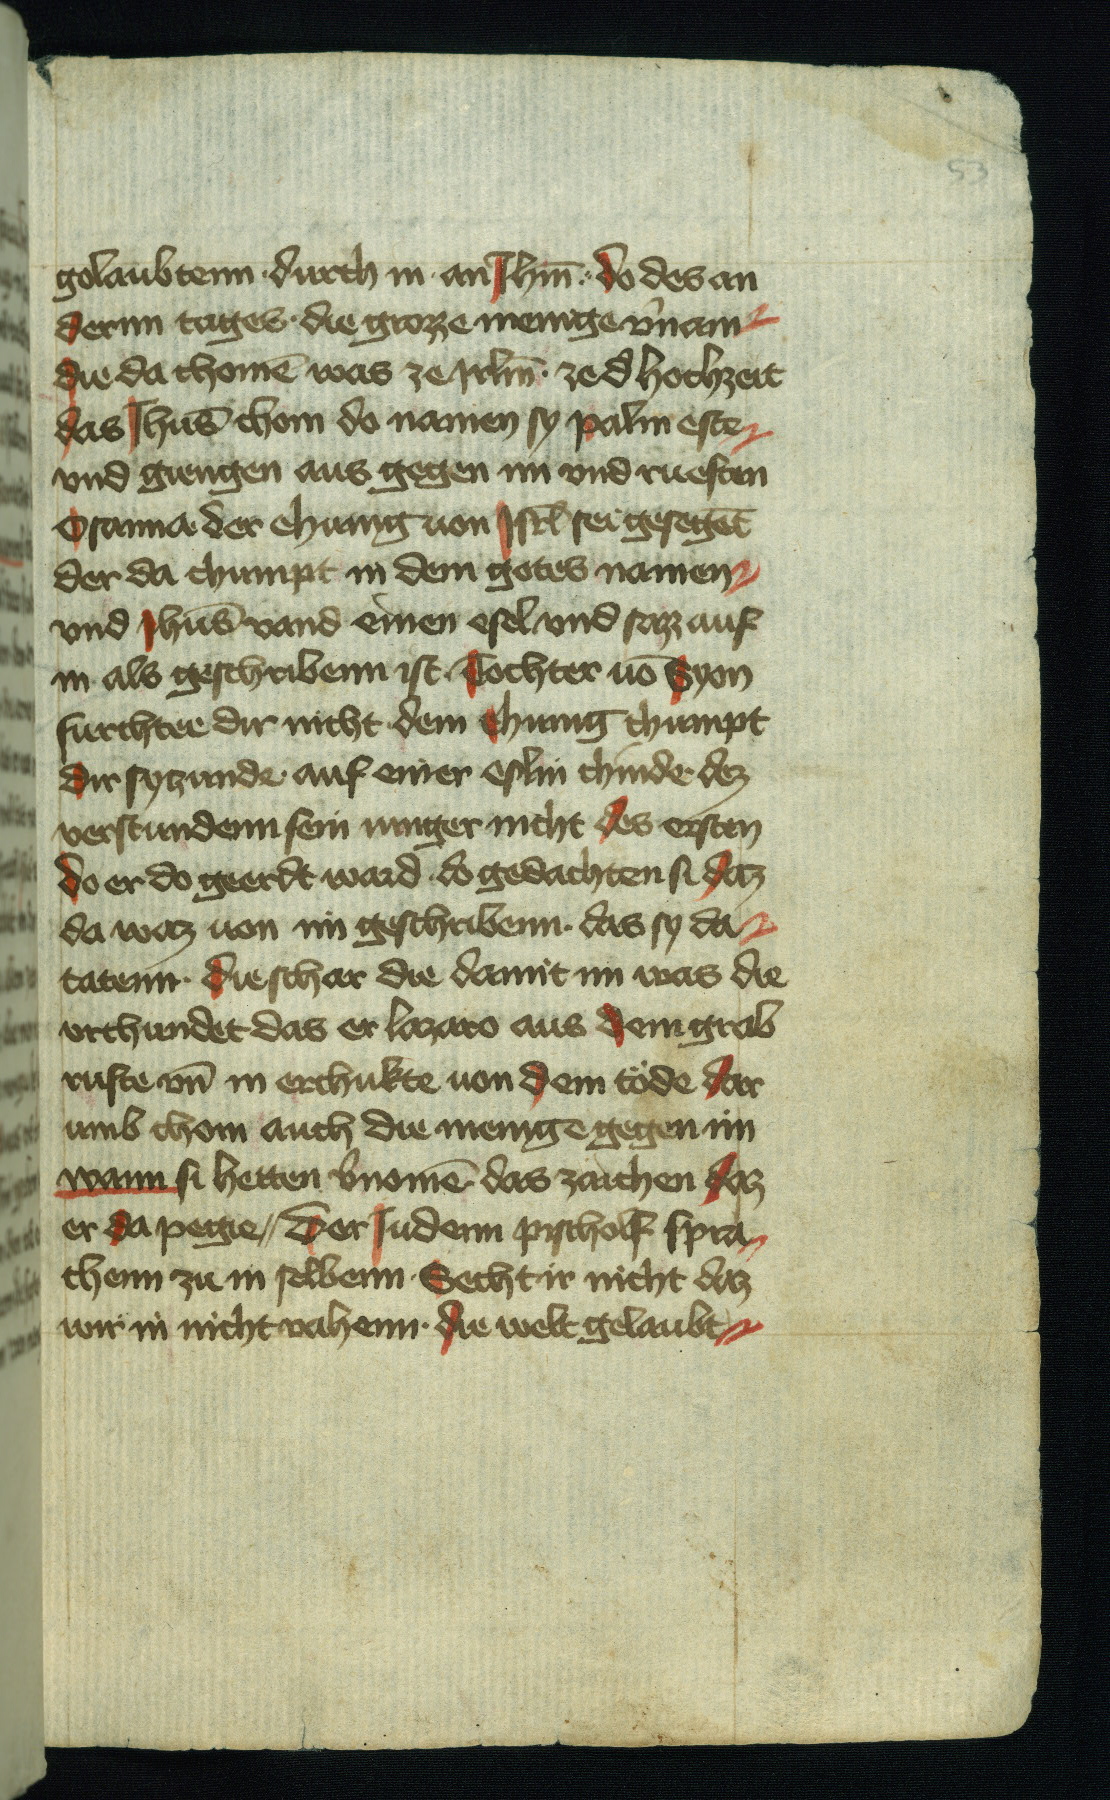 53
golaubtenn · durch in · an Jhm̄ · do des an
dernn tages · die grozze menige v̓nam
die da chomē was ze Jrlm̄ · ze d̓ hochzeit
das Jhus̄ chom do namen sy palm este
vnd giengen aus gegen im vnd ruesten
Osanna der chunig uon Jsrl̄ sei gesegēt
der da chumpt in dem gotes namen
vnd Jhus̄ vand einen esel vnd sazz auf
in als geschribenn ist · Tochter uō Syon
furchtee dir nicht dem chunig chumpt
dir syzunde · auf einer eslin chinde dez
verstundenn sein iunger nicht des ersten
do er do geerdt ward · do gedachten si daz
da waz uon im geschribenn · das sy da
tatenn · die schar die da mit im was die
vrchundet das er lazaro aus dem grab
rufte vn̄ in erchukte uon dem töde dar
umb chom auch die menige gegen im
wann si hetten v̓nomē das zaichen daz
er da pegie // Der Judenn pischolf spra
chenn zu in selbenn · Secht ir nicht daz
wir in nicht vahenn · die welt gelaubt